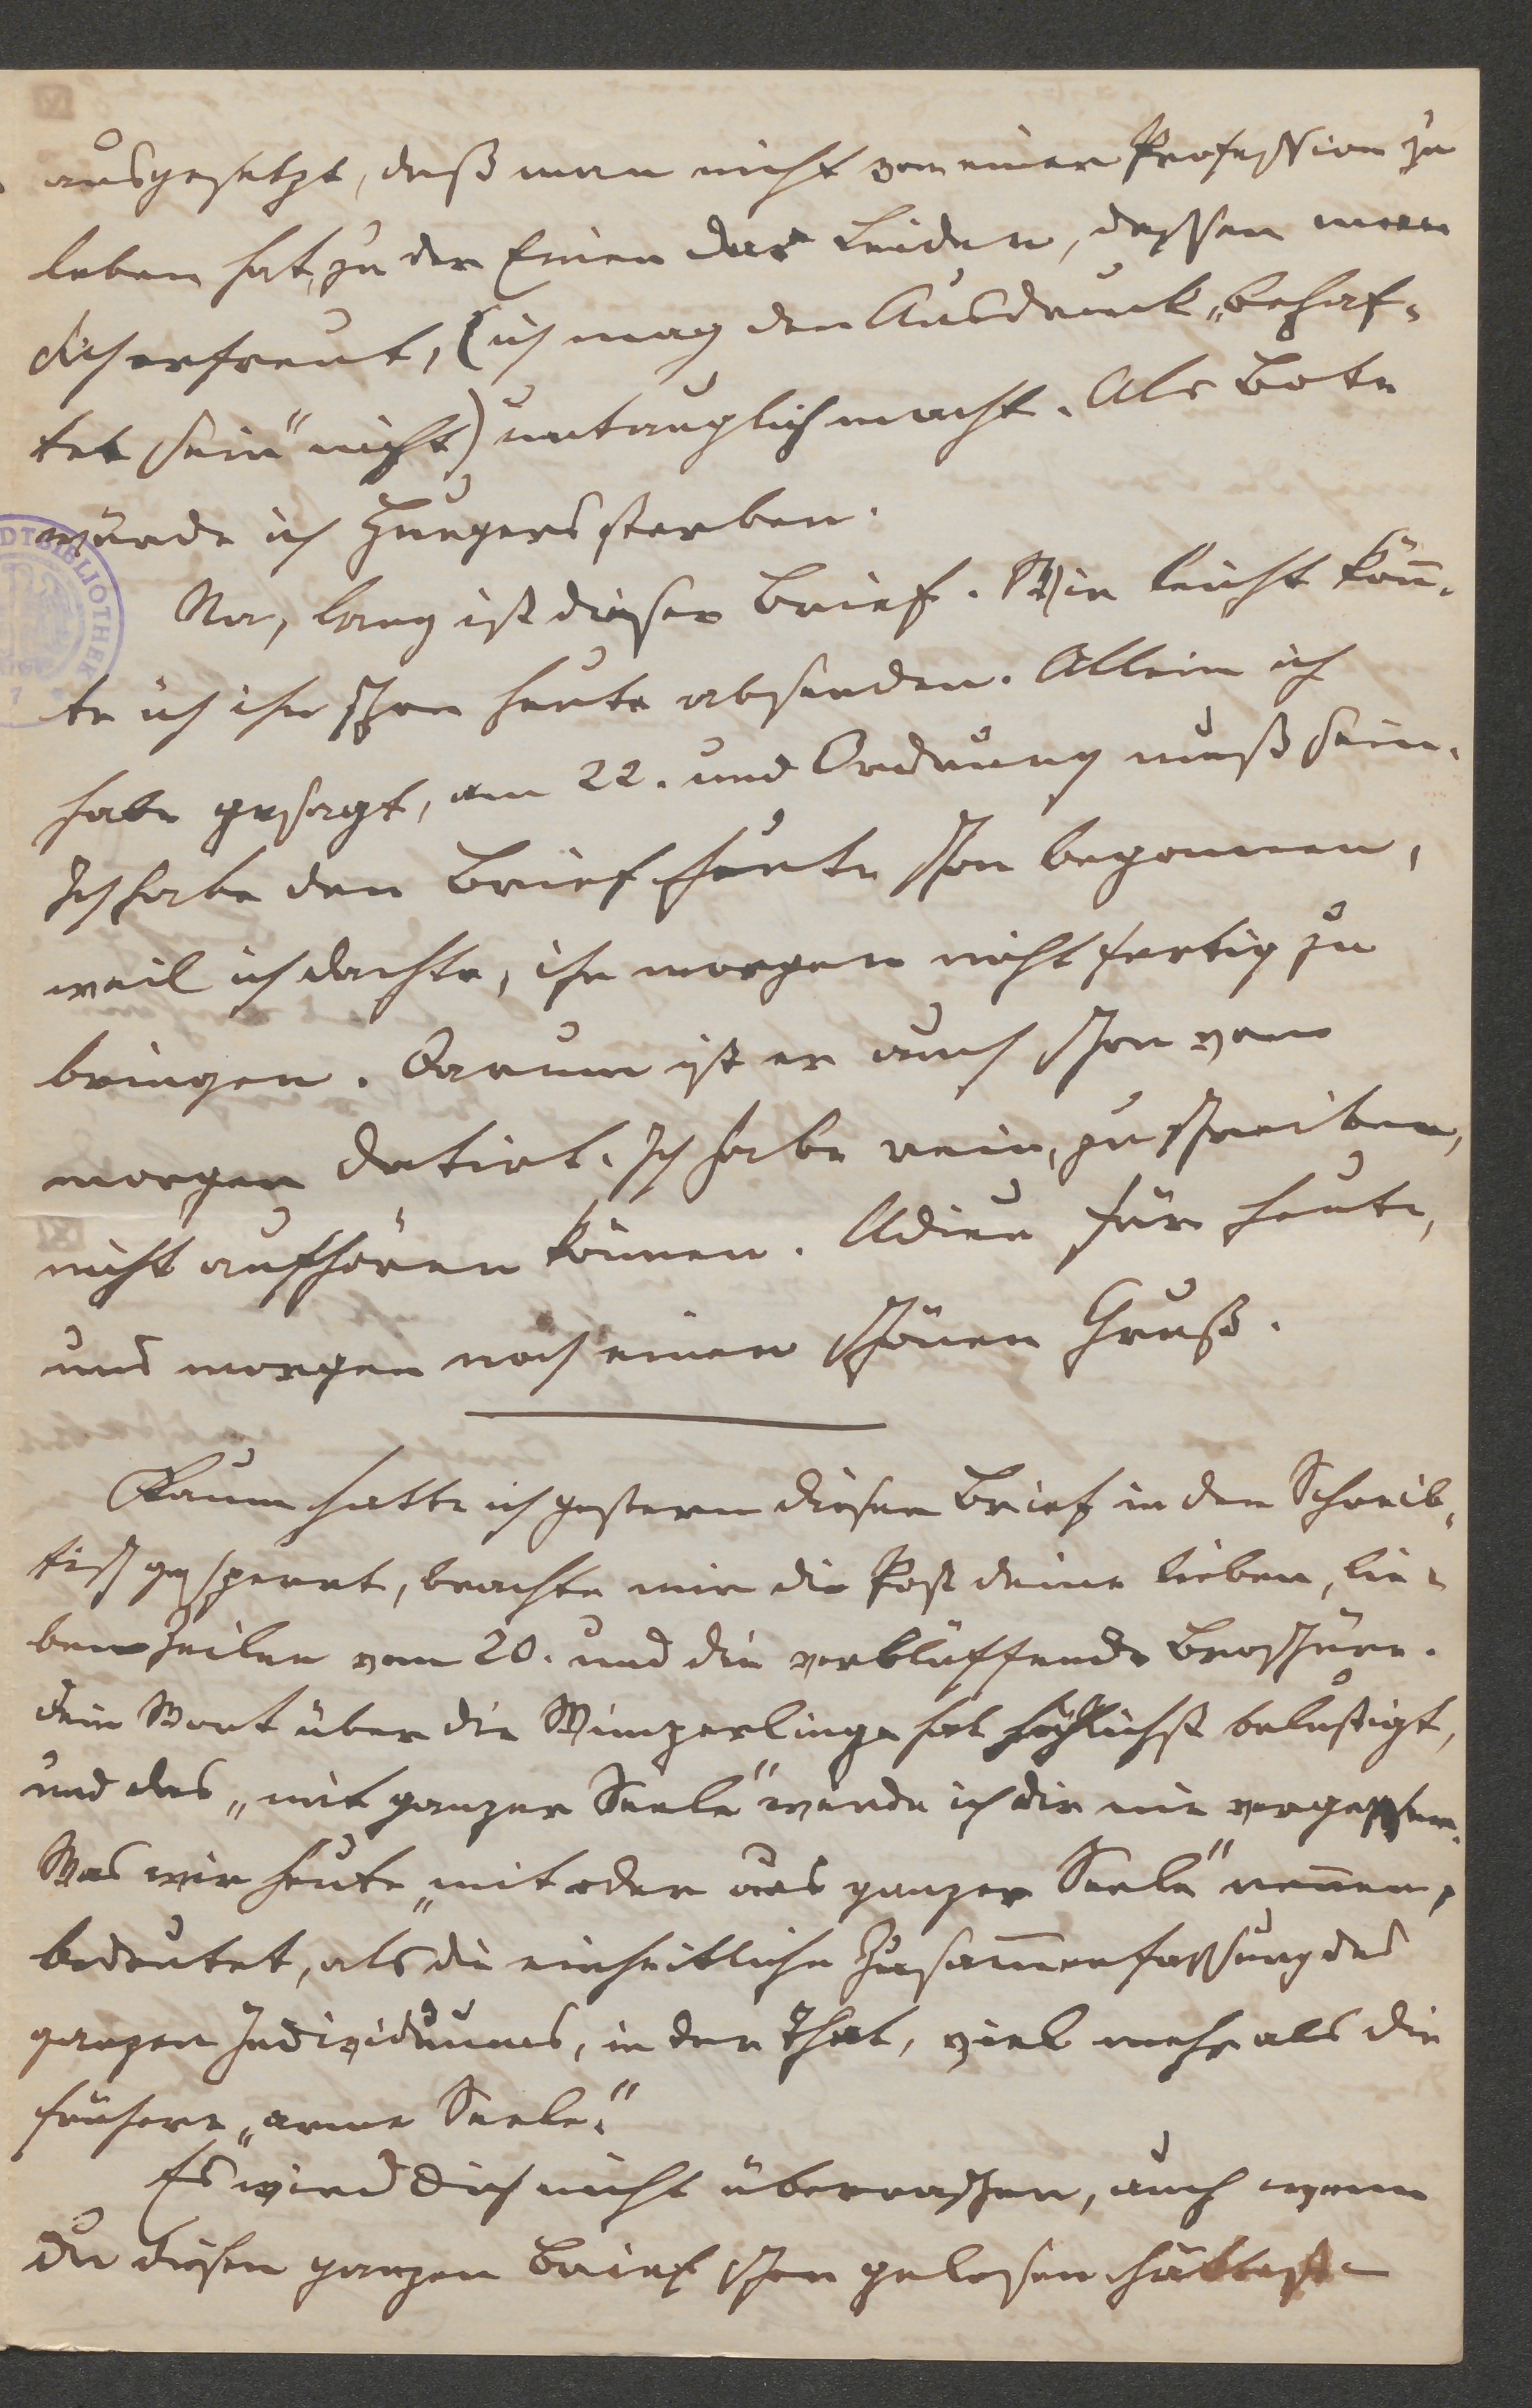 ausgesetzt, daß man nicht von einer Profession zu
leben hat, zu der Einen das Leiden, dessen man
sich erfreut, (ich mag den Ausdruck „behaf-
tet sein“ nicht) untauglich macht. Als Bote
würde ich Hungers sterben.
Na, lang ist dieser Brief. Wie leicht kön̄-
te ich ihn schon heute absenden. Allein ich
habe gesagt, am 22. und Ordnung muß sein.
Ich habe den Brief heute schon begonnen,
weil ich dachte, ihn morgen nicht fertig zu
bringen. Darum ist er auch schon von
morgen datirt. Ich habe rein, zu schreiben,
nicht aufhören können. Adieu für heute,
und morgen noch einen schönen Gruß.
Kaum hatte ich gestern diesen Brief in den Schreib-
tisch gesperrt, brachte mir die Post deine lieben, lie-
ben Zeilen vom 20. und die verblüffende Broschüre.
Dein Wort über die Wimperlinge hat höchlichst belustigt,
und das „mit ganzer Seele“ werde ich dir nie vergessen.
Was wir heute „mit oder aus ganzer Seele“ nennen,
bedeutet, als die einheitliche Zusam̄enfassung des
ganzen Individuums, in der That, viel mehr als die
frühere „arme Seele.“
Es wird dich nicht überraschen, auch wenn
du diesen ganzen Brief schon gelesen hättest
STADTBIBLIOTHEK